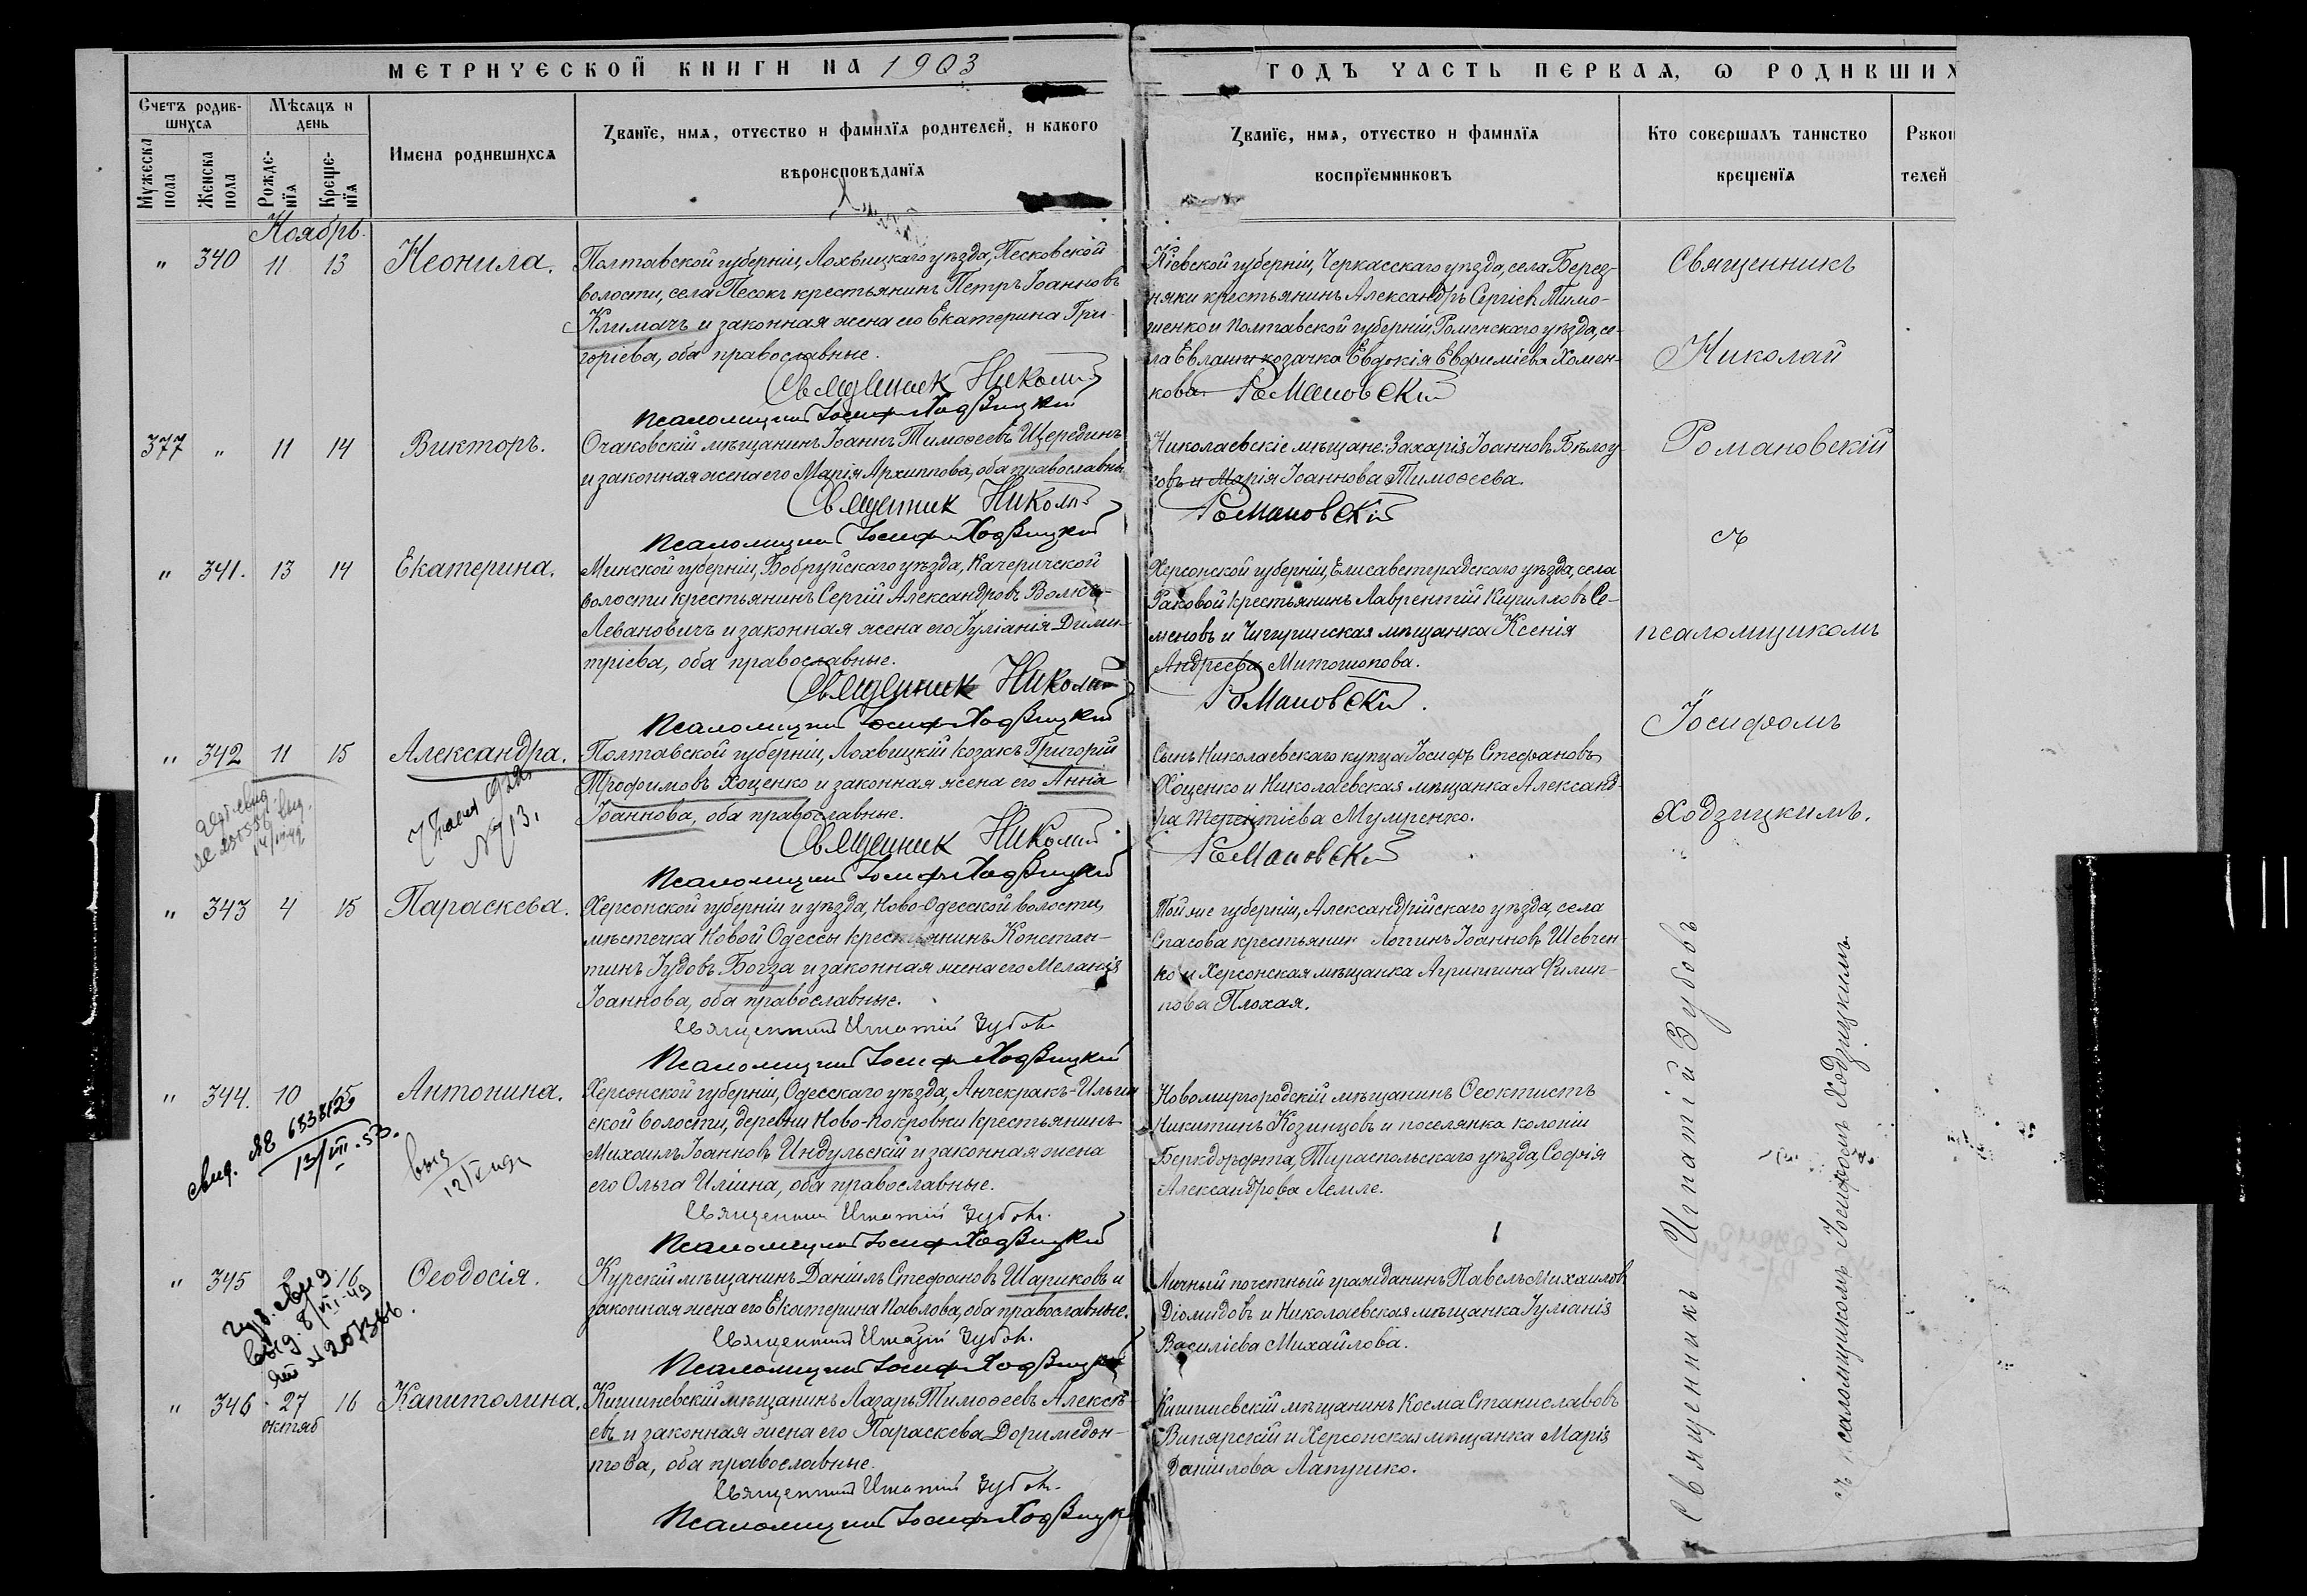 МЕТРИЧЕСКОЙ КНИГИ НА 1903
ГОДЪ ЧАСТЬ ПЕРВАЯ, Ѡ РОДИВШИХ
Счетъ родив-
шихся
Мѣсяцъ и
день
Мужеска
пола
Женска
пола
Рожде-
нїя
Креще-
нїя
Имена родившихся
Званїе, имя, отчество и фамилїя родителей, и какого
вѣроисповѣданїя
Званїе, имя, отчество и фамилїя
воспрїемниковъ
Кто совершалъ таинство
крещенїя
Рукоп
телей
Ноябрь.
" 340 11 13 Неонила.
Полтавской губерніи, Лохвицкаго уѣзда, Песковской
волости, села Песокъ крестьянинъ Петръ Іоанновъ
Климачъ и законная жена его Екатерина Гри-
горіева, оба православные.
Священник Николай
Псаломщикъ Іосифъ Ходзицкій
Кіевской губерніи, Черкасскаго уѣзда, села Берез-
няки крестьянинъ Александръ Сергіевъ Тимо-
шенко и Полтавской губерніи, Роменскаго уѣзда, се-
ла Евлаши козачка Евдокія Евфиміева Хомен-
кова.
Романовскій
377 " 11 14 Викторъ.
Очаковскій мѣщанинъ Іоаннъ Тимоѳеевъ Щерединъ
и законная жена его Марія Архиппова, оба православны
Священник Николай
Псаломщикъ Іосифъ Ходзицкій
Николаевскіе мѣщане: Захарія Іоанновъ Бѣлоу-
совъ и Марія Іоаннова Тимоѳеева.
Романовскій
" 341. 13 14 Екатерина.
Минской губерніи, Бобруйскаго уѣзда, Качеричской
волости крестьянинъ Сергій Александровъ
Левановичъ и законная жена его Іуліанія Дими-
тріева, оба православные.
Священник Николай
Псаломщикъ Іосифъ Ходзицкій
Херсонской губерніи, Елисаветградскаго уѣзда, села
Раковой крестьянинъ Лаврентій Кирилловъ Се-
меновъ и Чигиринская мѣщанка Ксенія
Андреева
Романовскій.
" 342 11 15 Александра.
Полтавской губерніи, Лохвицкій козакъ Григорій
Трофимовъ Хоценко и законная жена его Анна
Іоаннова, оба православные.
Священник Николай
Псаломщикъ Іосифъ Ходзицкій
Сынъ Николаевскаго купца Іосифъ Стефановъ
Хоценко и Николаевская мѣщанка Александ-
ра Терентіева Мумренко.
Романовскій
№ 713,
" 343 4 15 Параскева.
Херсонской губерніи и уѣзда, Ново-Одесской волости,
мѣстечка Новой Одессы крестьянинъ Констан-
тинъ Іудовъ Богза и законная жена его Меланія
Іоаннова, оба православные.
Священникъ Игнатій Зубовъ
Псаломщикъ Іосифъ Ходзицкій
Той же губерніи, Александрійскаго уѣзда, села
Спасова крестьянин Логгинъ Іоанновъ Шевчен-
ко и Херсонская мѣщанка Агриппина Филип-
пова Плохая.
" 344. 10 15 Антонина.
Херсонской губерніи, Одесскаго уѣзда, Анчекракъ-Ильин
ской волости, деревни Ново-Покровки крестьянинъ
Михаилъ Іоанновъ Индульскій и законная жена
его Ольга Иліина, оба православные.
Священникъ Игнатій Зубовъ.
Псаломщикъ Іосифъ Ходзицкій
Новомиргородскій мѣщанинъ Ѳеоктистъ
Никитинъ Козинцовъ и поселянка колоніи
Бергдорфта, Тираспольскаго уѣзда, Софія
Александрова Лемле.
свид. ЯЕ 6338129
13/VIII-53.
выд
" 345 16 Ѳеодосія.
Курскій мѣщанинъ Даніилъ Стефановъ Шариковъ и
законная жена его Екатерина Павлова, оба православные.
Священникъ Игнатій Зубовъ.
Псаломщикъ Іосифъ Ходзицкій
Личный почетный гражданинъ Павелъ Михаиловъ
Діомидовъ и Николаевская мѣщанка Іуліанія
Василіева Михайлова.
" 346 27 16 Капитолина.
октяб
Кишиневскій мѣщанинъ Лазарь Тимоѳеевъ Алексѣ-
евъ и законная жена его Параскева Доримедон-
това, оба православные.
Священникъ Игнатій Зубовъ.
Псаломщикъ Іосифъ Ходзицк
Кишиневскій мѣщанинъ Косма Станиславовъ
Винярскій и Херсонская мѣщанка Марія
Даніилова Лапушко.
Священникъ
Николай
Романовскій
съ
псаломщикомъ
Іосифомъ
Ходзицкимъ.
Священникъ Игнатій Зубовъ
съ псаломщикомъ Іосифомъ Ходзицкимъ.